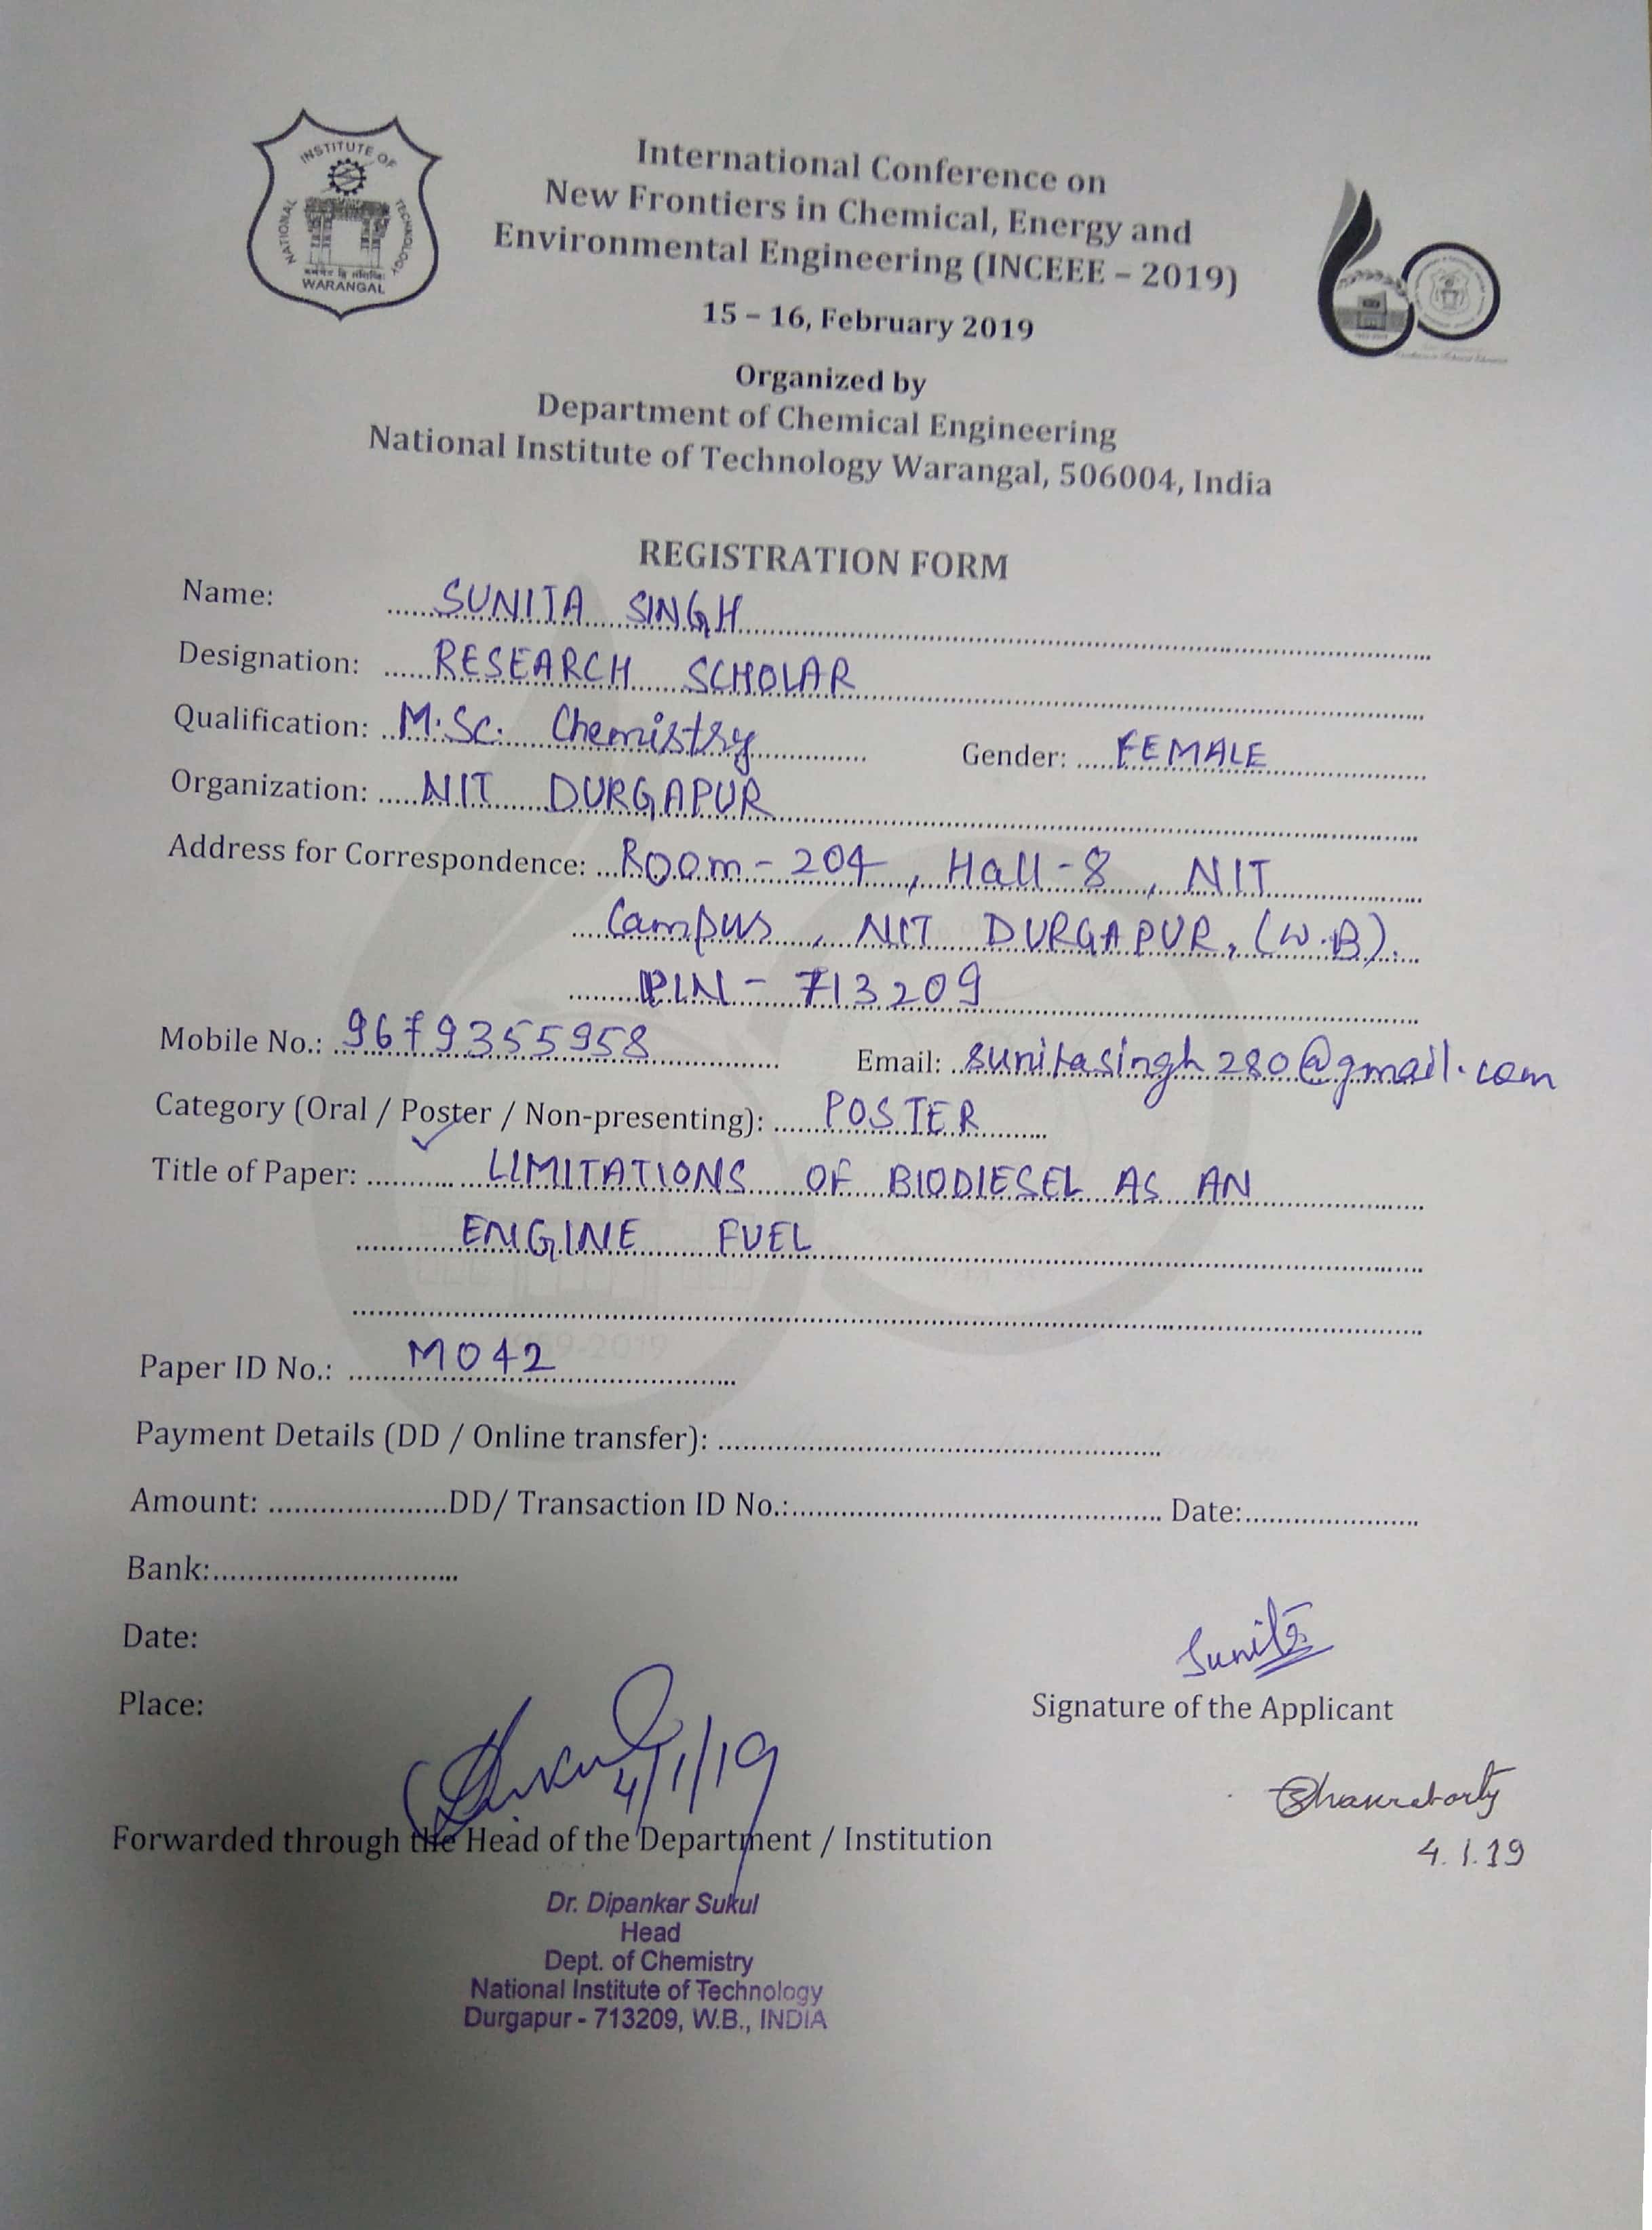 INSTITUTE OF
NATIONAL
TECHNOLOGY
WARANGAL
International Conference on
New Frontiers in Chemical, Energy and
Environmental Engineering (INCEEE – 2019)
15 – 16, February 2019
Organized by
Department of Chemical Engineering
National Institute of Technology Warangal, 506004, India
REGISTRATION FORM
Name: SUNITA SINGH
Designation: RESEARCH SCHOLAR
Qualification: M.Sc. Chemistry Gender: FEMALE
Organization: NIT DURGAPUR
Address for Correspondence: Room-204, Hall-8, NIT
Campus, NIT DURGAPUR, (W.B).
PIN - 713209
Mobile No.: 9679355958 Email: sunitasingh280@gmail.com
Category (Oral / Poster / Non-presenting): POSTER
Title of Paper: LIMITATIONS OF BIODIESEL AS AN
ENGINE FUEL
1959-2019
Paper ID No.: M042
Payment Details (DD / Online transfer):
Amount: DD/ Transaction ID No.: Date:
Bank:
Date:
Sunita
Place:
Signature of the Applicant
4/1/19
Forwarded through the Head of the Department / Institution
4.1.19
Dr. Dipankar Sukul
Head
Dept. of Chemistry
National Institute of Technology
Durgapur - 713209, W.B., INDIA